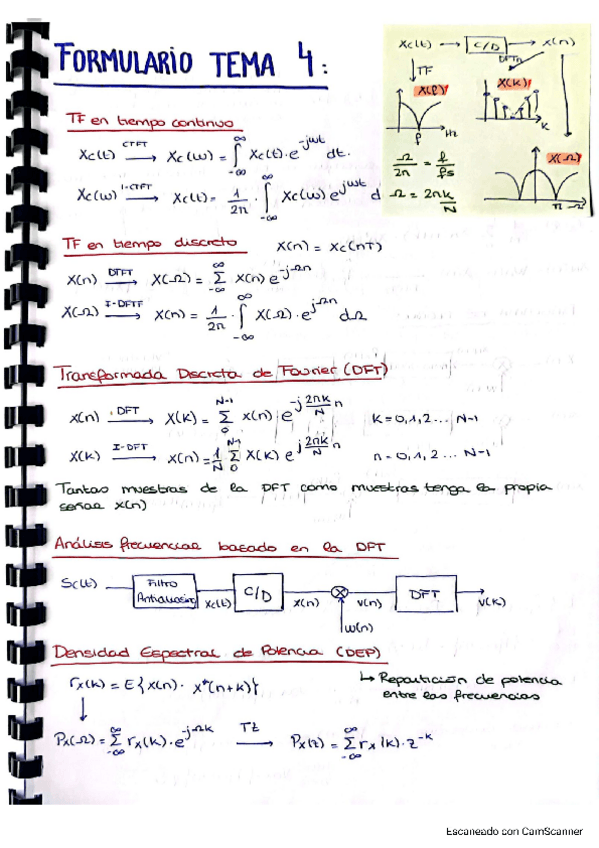 FORMULARIO TEMA 4:
Xc(t) → C/D → X(n)
DFTn
↓TF
X(f)
X(K)
f
Hz
K
X(Ω)
Ω/2π = f/fs
Ω = 2πk/N
π Ω
TF en tiempo continuo
Xc(t) CTFT→ Xc(ω) = ∫_{-∞}^{∞} Xc(t)·e^{-jωt} dt.
Xc(ω) I-CTFT→ Xc(t) = 1/2π · ∫_{-∞}^{∞} Xc(ω) e^{jωt} d
TF en tiempo discreto X(n) = Xc(nT)
X(n) DTFT→ X(Ω) = Σ_{-∞}^{∞} X(n) e^{-jΩn}
X(Ω) I-DFTF→ X(n) = 1/2π · ∫_{-∞}^{∞} X(Ω)·e^{jΩn} dΩ
Transformada Discreta de Fourier (DFT)
X(n) DFT→ X(K) = Σ_{0}^{N-1} X(n) e^{-j 2πk/N n} K = 0,1,2... N-1
X(K) I-DFT→ X(n) = 1/N Σ_{0}^{N-1} X(K) e^{j 2πk/N n} n = 0,1,2... N-1
Tantas muestras de la DFT como muestras tenga la propia
señal X(n)
Análisis frecuencial basado en la DFT
Sc(t) Filtro Antialiasing Xc(t) C/D X(n) ⊗ V(n) DFT V(K)
W(n)
Densidad Espectral de Potencia (DEP)
rx(K) = E{X(n)· X*(n+K)}
↳ Repartición de potencia
entre las frecuencias
↓
Px(Ω) = Σ_{-∞}^{∞} rx(K)·e^{-jΩK} TZ→ Px(z) = Σ_{-∞}^{∞} rx(K)·z^{-K}
Escaneado con CamScanner